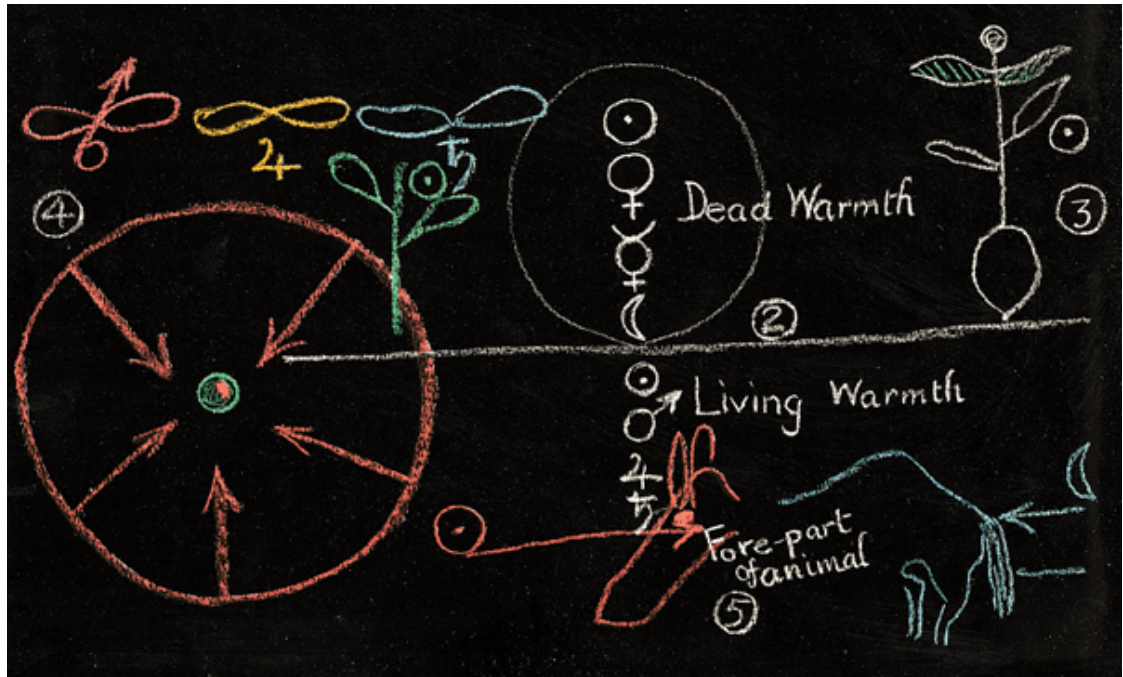 ♃
♄
④
☉
☉
♀
Dead Warmth
☿
☾
☉
③
②
☉
♂
Living Warmth
♃
♄
☉
Fore-part
of animal
⑤
☾